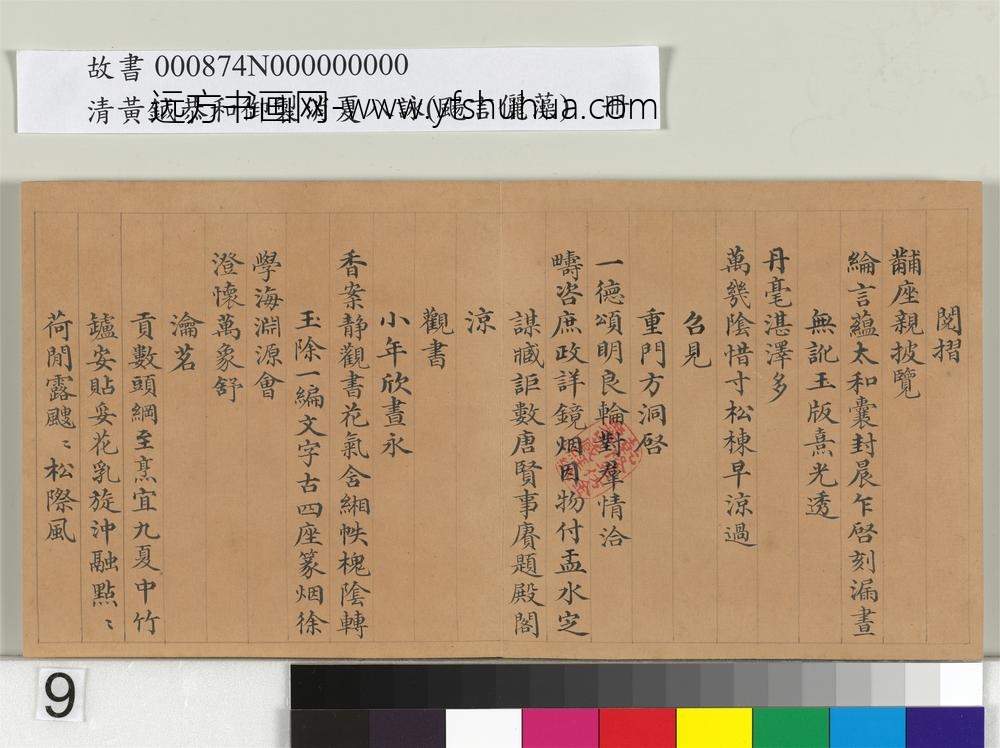 故書 000874N000000000
清黃鉞恭和御製消夏 詠 冊
远方书画网-www.yfshuhua.com
閱摺
黼座親披覽
綸言蘊太和囊封晨乍啓刻漏晝
無訛玉版熹光透
丹毫湛澤多
萬幾陰惜寸松棟早涼過
召見
重門方洞啓
一德頌明良輪對羣情洽
疇咨庶政詳鏡烟因物付盂水定
謀臧詎數唐賢事賡題殿閣
涼
觀書
小年欣晝永
香案静觀書花氣含緗帙槐陰轉
玉除一編文字古四座篆烟徐
學海淵源會
澄懷萬象舒
瀹茗
貢數頭綱至烹宜九夏中竹
鑪安貼妥花乳旋沖融點〻
荷開露颼〻松際風
9